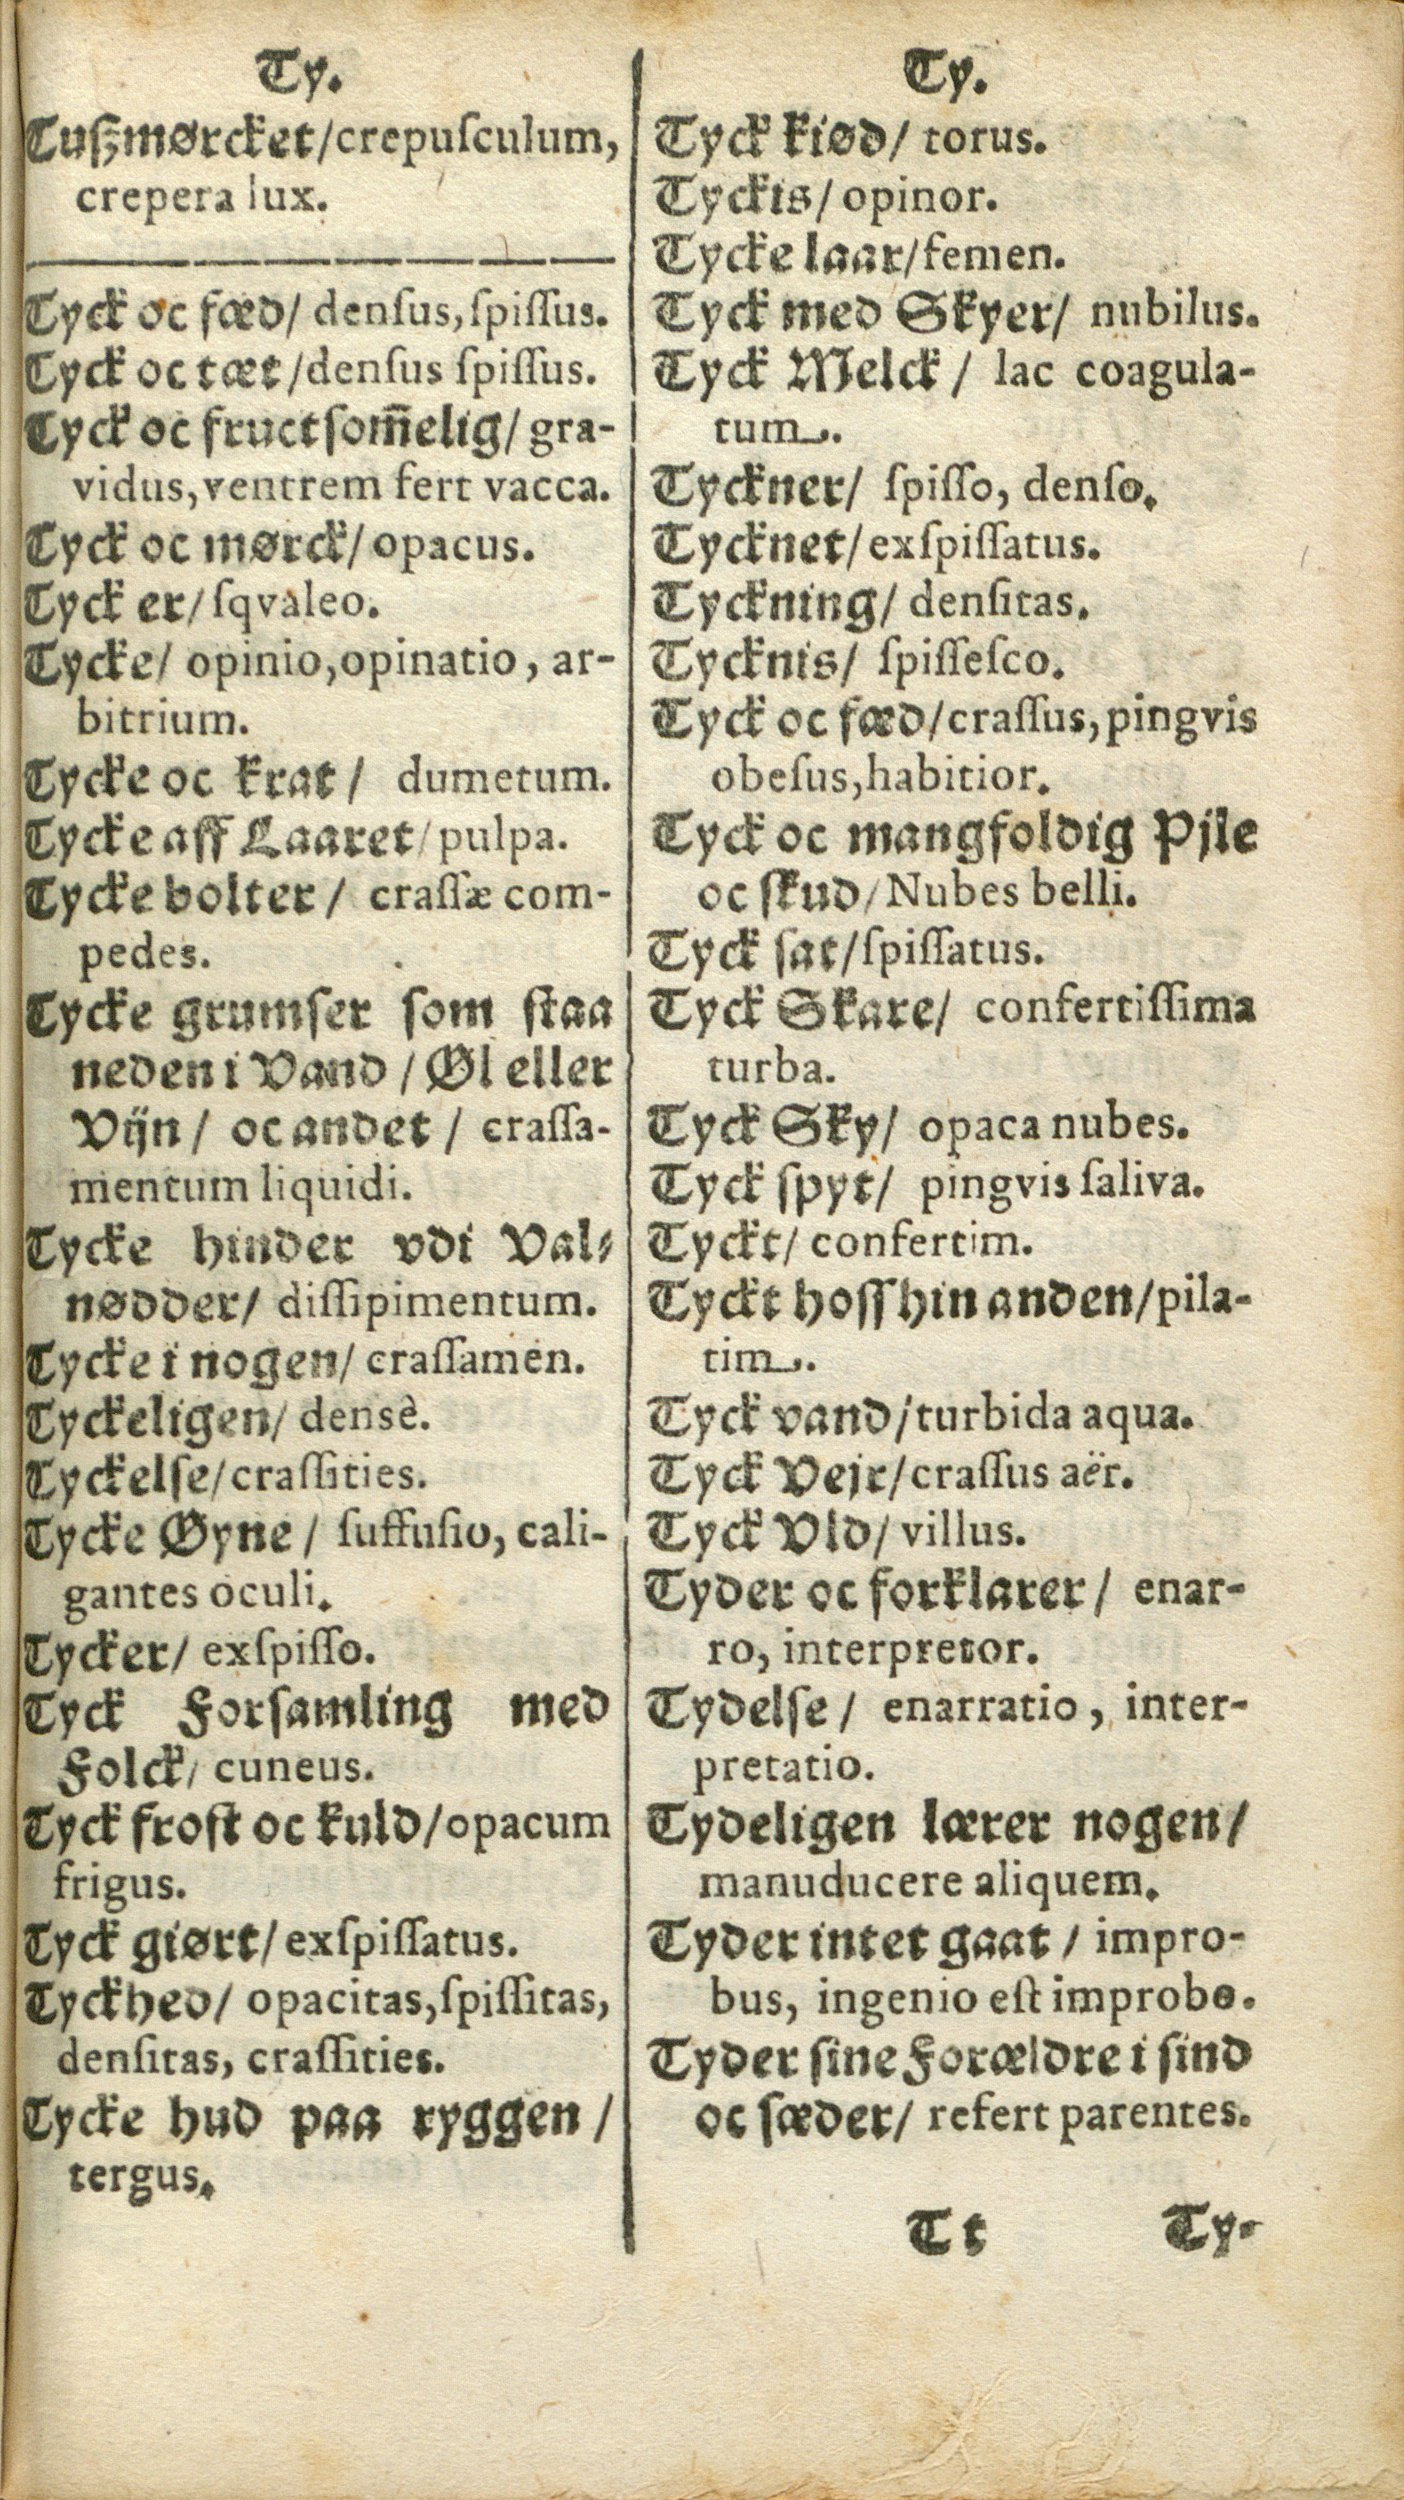 Ty.
Tuſzmørcket/crepuſculum,
crepera lux.
Tyck oc fæd/ denſus, ſpiſſus.
Tyck oc tæt/denſus ſpiſſus.
Tyck oc fructſom̃elig/ gra-
vidus, ventrem fert vacca.
Tyck oc mørck/ opacus.
Tyck er/ ſqvaleo.
Tycke/ opinio, opinatio, ar-
bitrium.
Tycke oc krat/ dumetum.
Tycke aff Laaret/ pulpa.
Tycke bolter/ craſſæ com-
pedes.
Tycke grumſer ſom ſtaa
neden i Vand / Øl eller
Vijn/ oc andet / craſſa-
mentum liquidi.
Tycke hinder vdi Val-
nødder/ diſſipimentum.
Tycke i nogen/ craſſamen.
Tyckeligen/ densè.
Tyckelſe/ craſſities.
Tycke Øyne / ſuffuſio, cali-
gantes oculi.
Tycker/ exſpiſſo.
Tyck Forſamling med
Folck/ cuneus.
Tyck froſt oc kuld/opacum
frigus.
Tyck giørt/ exſpiſſatus.
Tyckhed/ opacitas, ſpiſſitas,
denſitas, craſſities.
Tycke hud paa ryggen /
tergus.
Ty.
Tyck kiød/ torus.
Tyckis/ opinor.
Tycke laar/femen.
Tyck med Skyer/ nubilus.
Tyck Melck / lac coagula-
tum.
Tyckner/ ſpiſſo, denſo.
Tycknet/ exſpiſſatus.
Tyckning/ denſitas.
Tycknis/ ſpiſſeſco.
Tyck oc fæd/craſſus, pingvis
obeſus, habitior.
Tyck oc mangfoldig Pjle
oc ſkud/ Nubes belli.
Tyck ſat/ſpiſſatus.
Tyck Skare/ confertiſſima
turba.
Tyck Sky/ opaca nubes.
Tyck ſpyt/ pingvis ſaliva.
Tyckt/ confertim.
Tyckt hoſſ hin anden/pila-
tim.
Tyck vand/turbida aqua.
Tyck Vejr/craſſus aër.
Tyck Vld/ villus.
Tyder oc forklarer/ enar-
ro, interpretor.
Tydelſe / enarratio, inter-
pretatio.
Tydeligen lærer nogen/
manuducere aliquem.
Tyder intet gaat / impro-
bus, ingenio eſt improbo.
Tyder ſine Forældre i ſind
oc ſæder/ refert parentes.
Tt Ty-